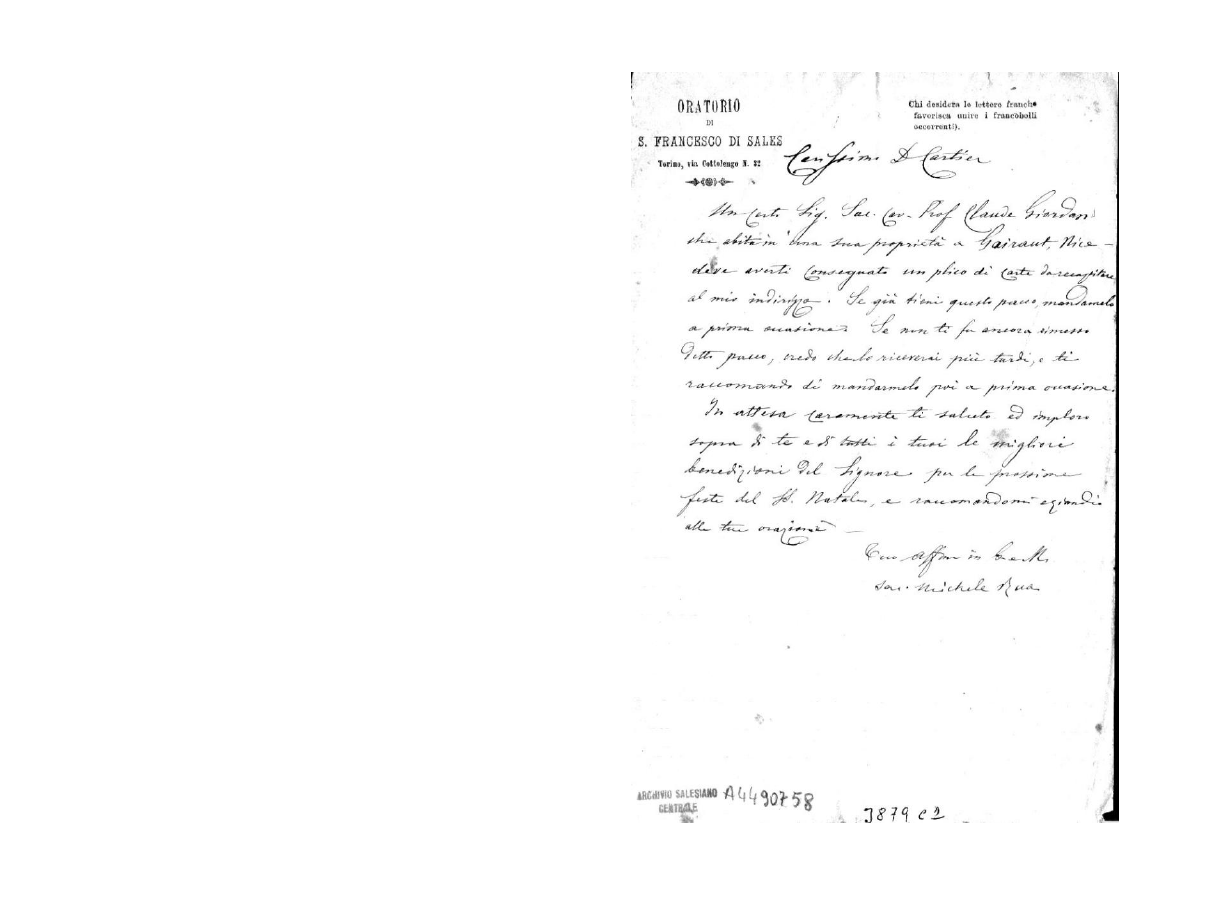 ORATORIO
DI
S. FRANCESCO DI SALES
Torino, via Cottolengo N. 32
Chi desidera le lettere franche
favorisca unire i francobolli
occorrenti).
Carissimo D Cartier
Un certo Sig. Sac. Cav. Prof Claude Giordan
che abita in una sua proprietà a Gairaut, Nice –
deve averti consegnato un plico di carte da recapitare
al mio indirizzo. Se già tieni questo pacco, mandamelo
a prima occasione. Se non ti fu ancora rimesso
detto pacco, credo che lo riceverai più tardi, e ti
raccomando di mandarmelo poi a prima occasione.
In attesa caramente ti saluto ed imploro
sopra di te e di tutti i tuoi le migliori
benedizioni del Signore per le prossime
feste del S. Natale, e raccomandomi eziandio
alle tue orazioni –
Tuo aff in
Sac. Michele Rua
ARCHIVIO SALESIANO
CENTRALE
A4490758
3879 C 2